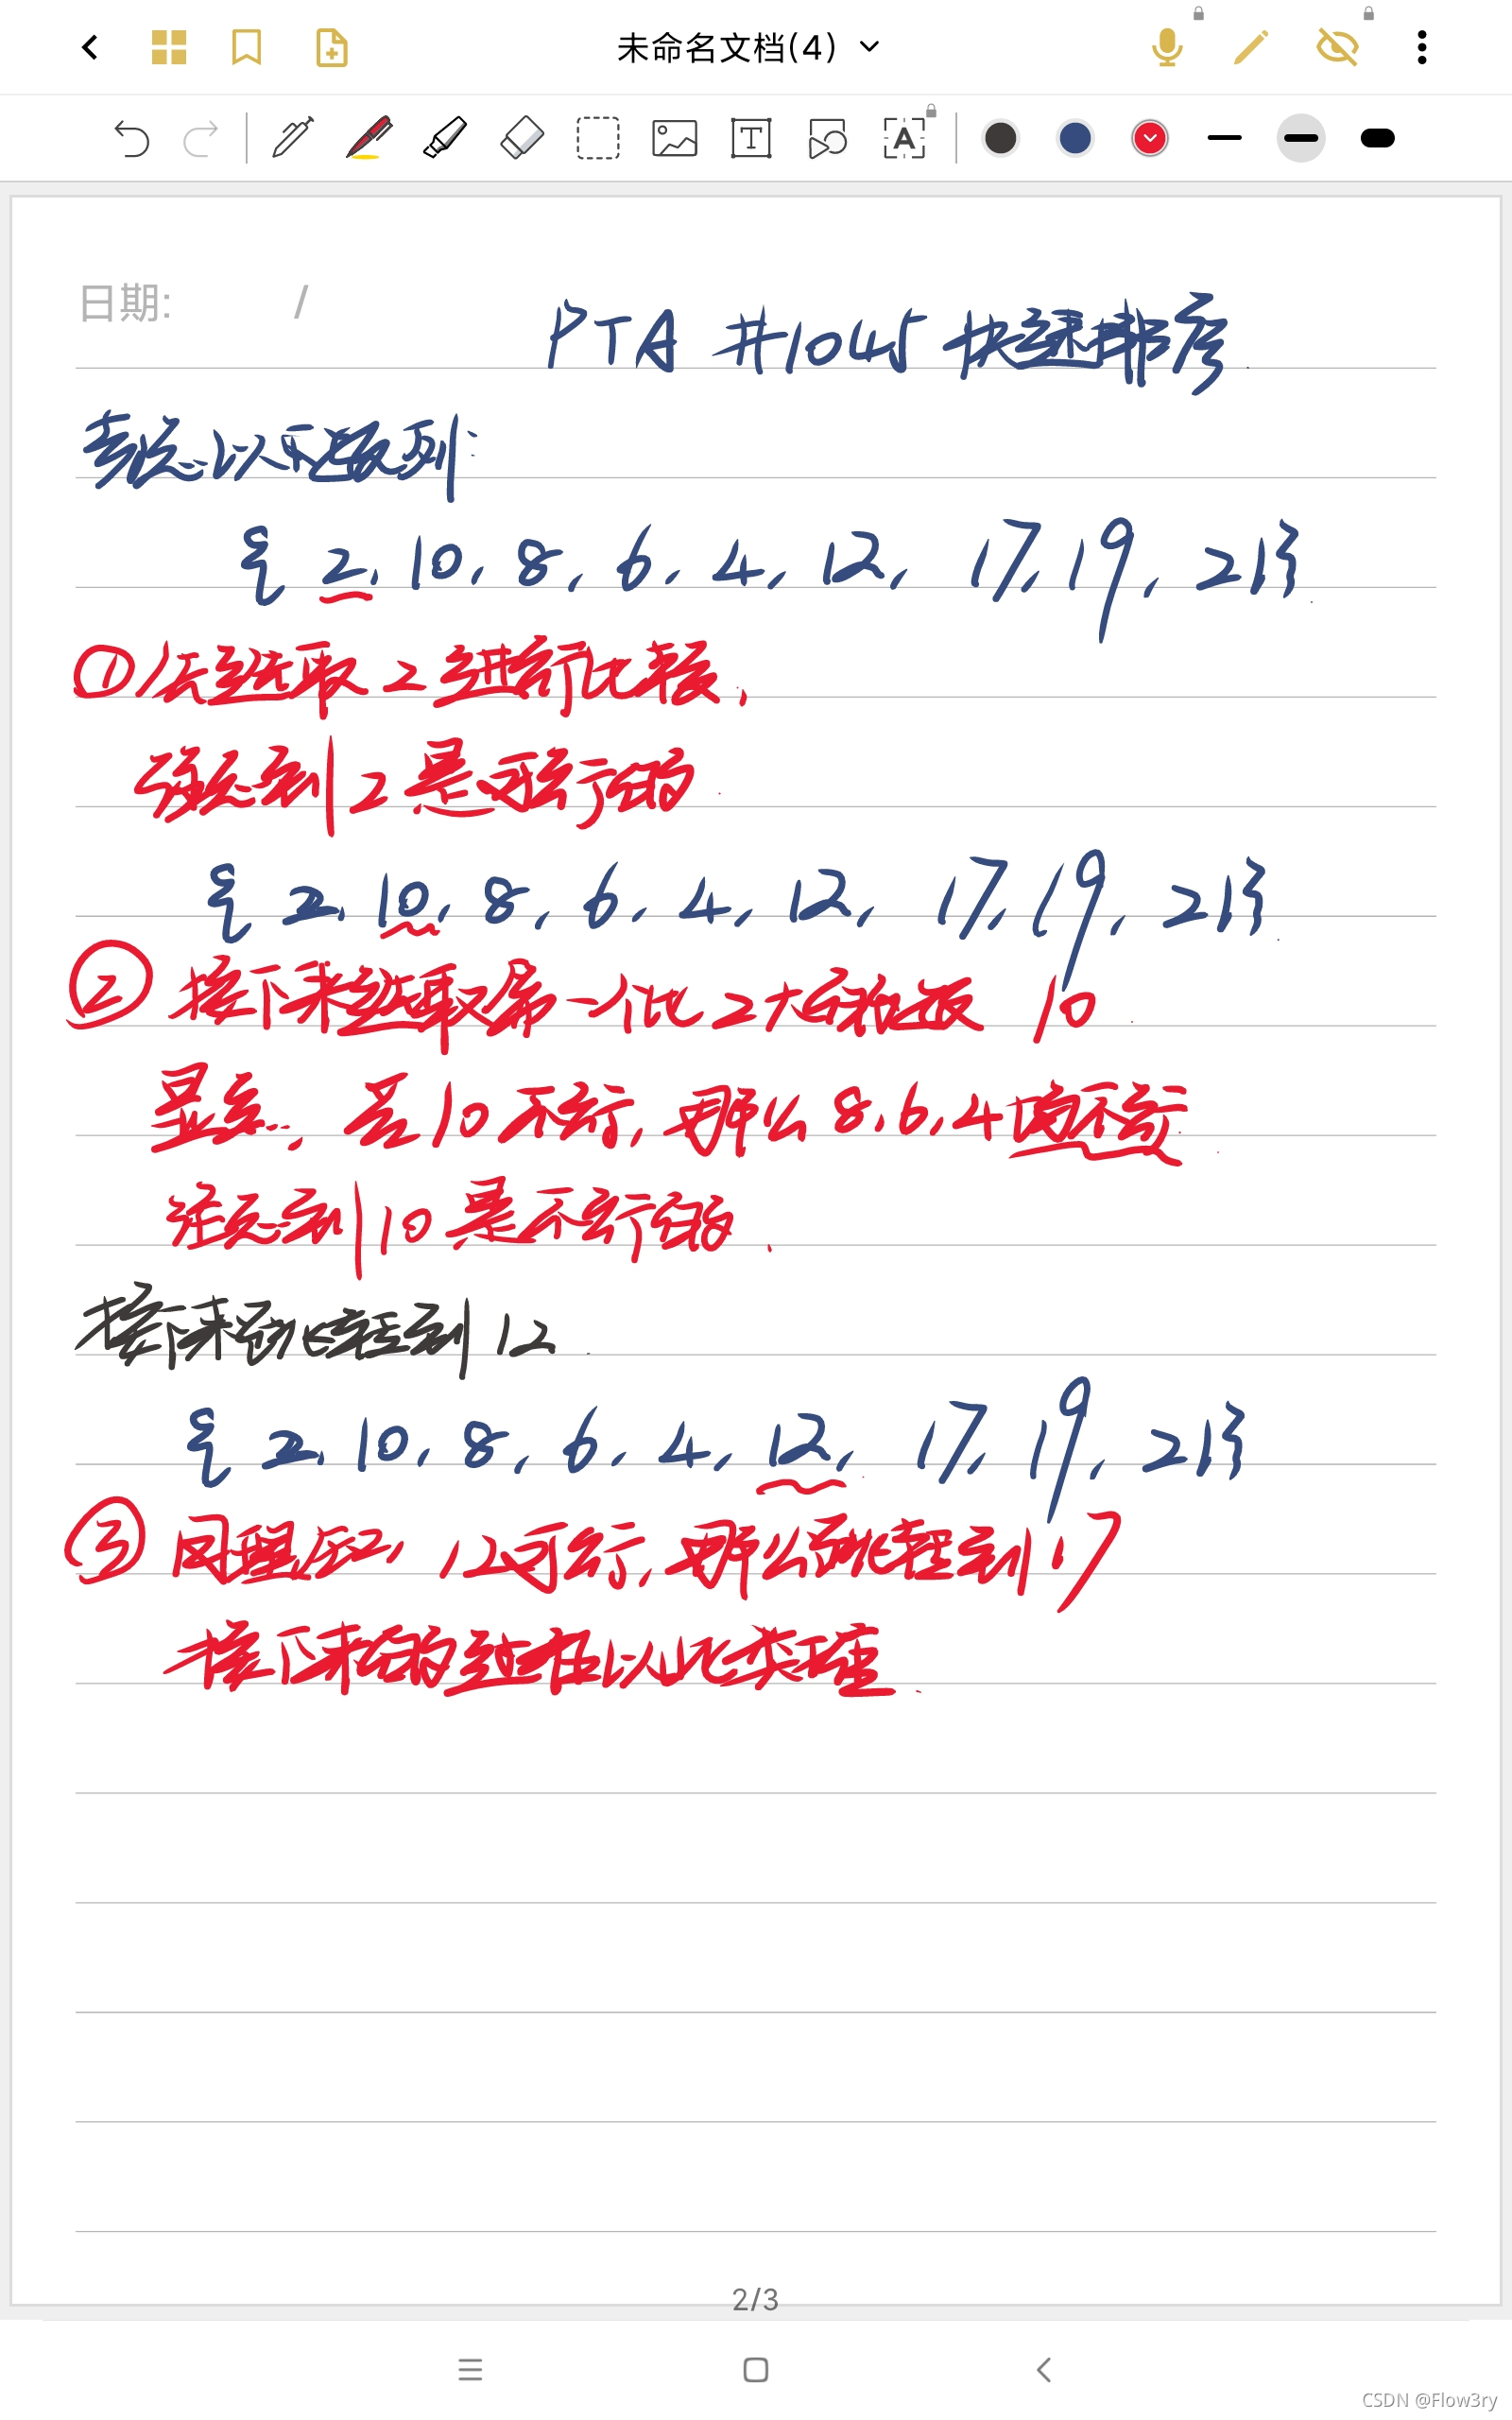 未命名文档(4)
日期: /
PTA #1045 快速排序
考虑以下数列:
{ 2, 10, 8, 6, 4, 12, 17, 19, 21}
①先选取2进行比较,
注意到2是可行的
{ 2, 10, 8, 6, 4, 12, 17, 19, 21}
② 接下来选取第一个比2大的数 10
显然, 若10不行, 那么8, 6, 4也不行
注意到10是不行的.
接下来跳转到12
{ 2, 10, 8, 6, 4, 12, 17, 19, 21}
③ 同理, 12可行, 那么跳转到17
接下来的过程以此类推.
2/3
CSDN @Flow3ry